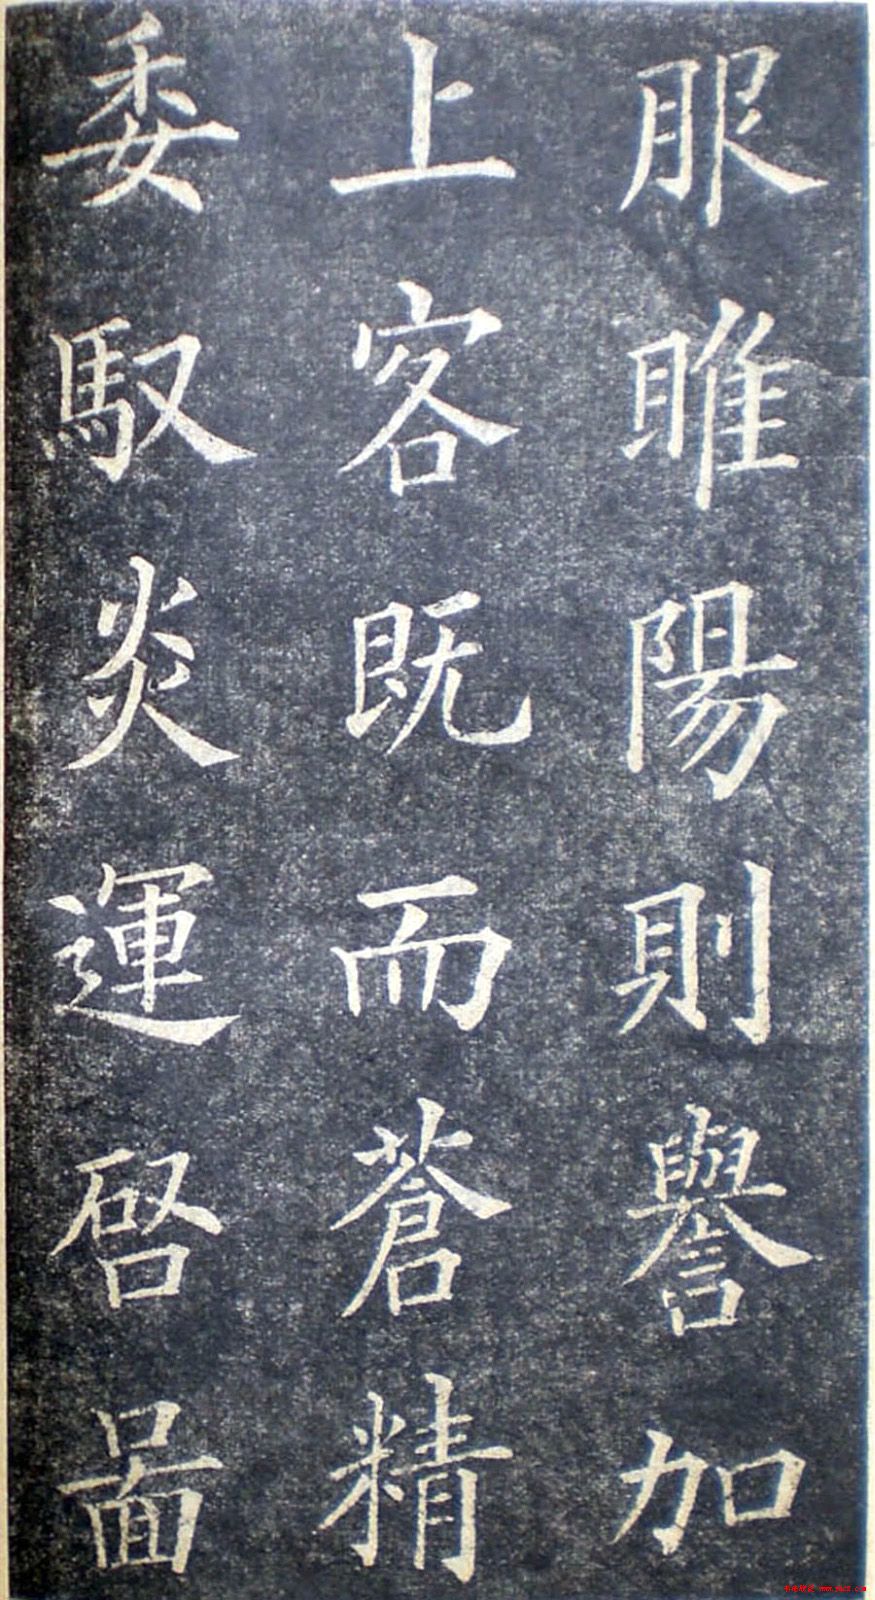 服睢陽則譽加
上客既而蒼精
委馭炎運啓啚